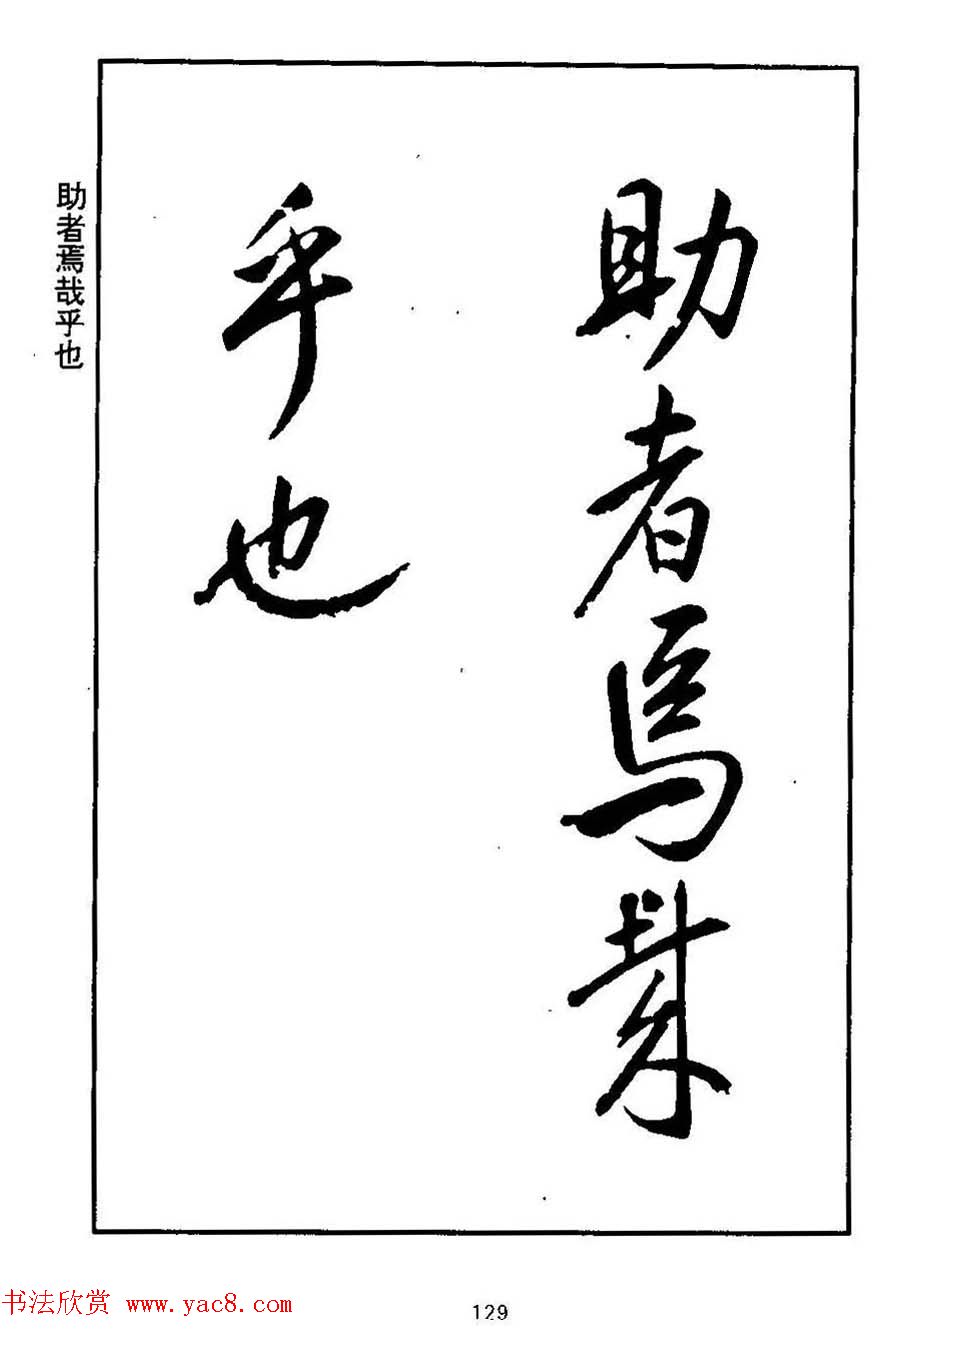 助者焉哉
乎也
助者焉哉乎也
书法欣赏 www.yac8.com
129